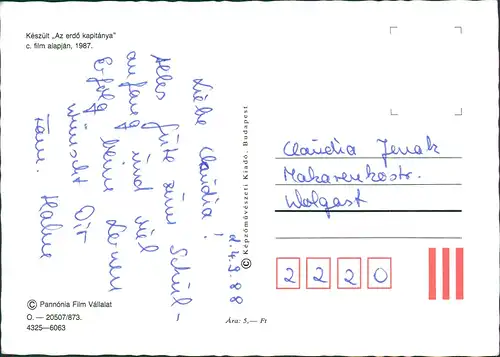 Készült „Az erdő kapitánya"
c. film alapján, 1987.
d. 4.9.88
Liebe Claudia!
Alles Gute zum Schul-
anfang und viel
Erfolg beim Lernen
wünscht Dir
Fam. Hahne
© Képzőművészeti Kiadó, Budapest
Claudia Jenak
Makarenkostr.
Wolgast
2220
© Pannónia Film Vállalat
O. — 20507/873.
4325—6063
Ára: 5,— Ft